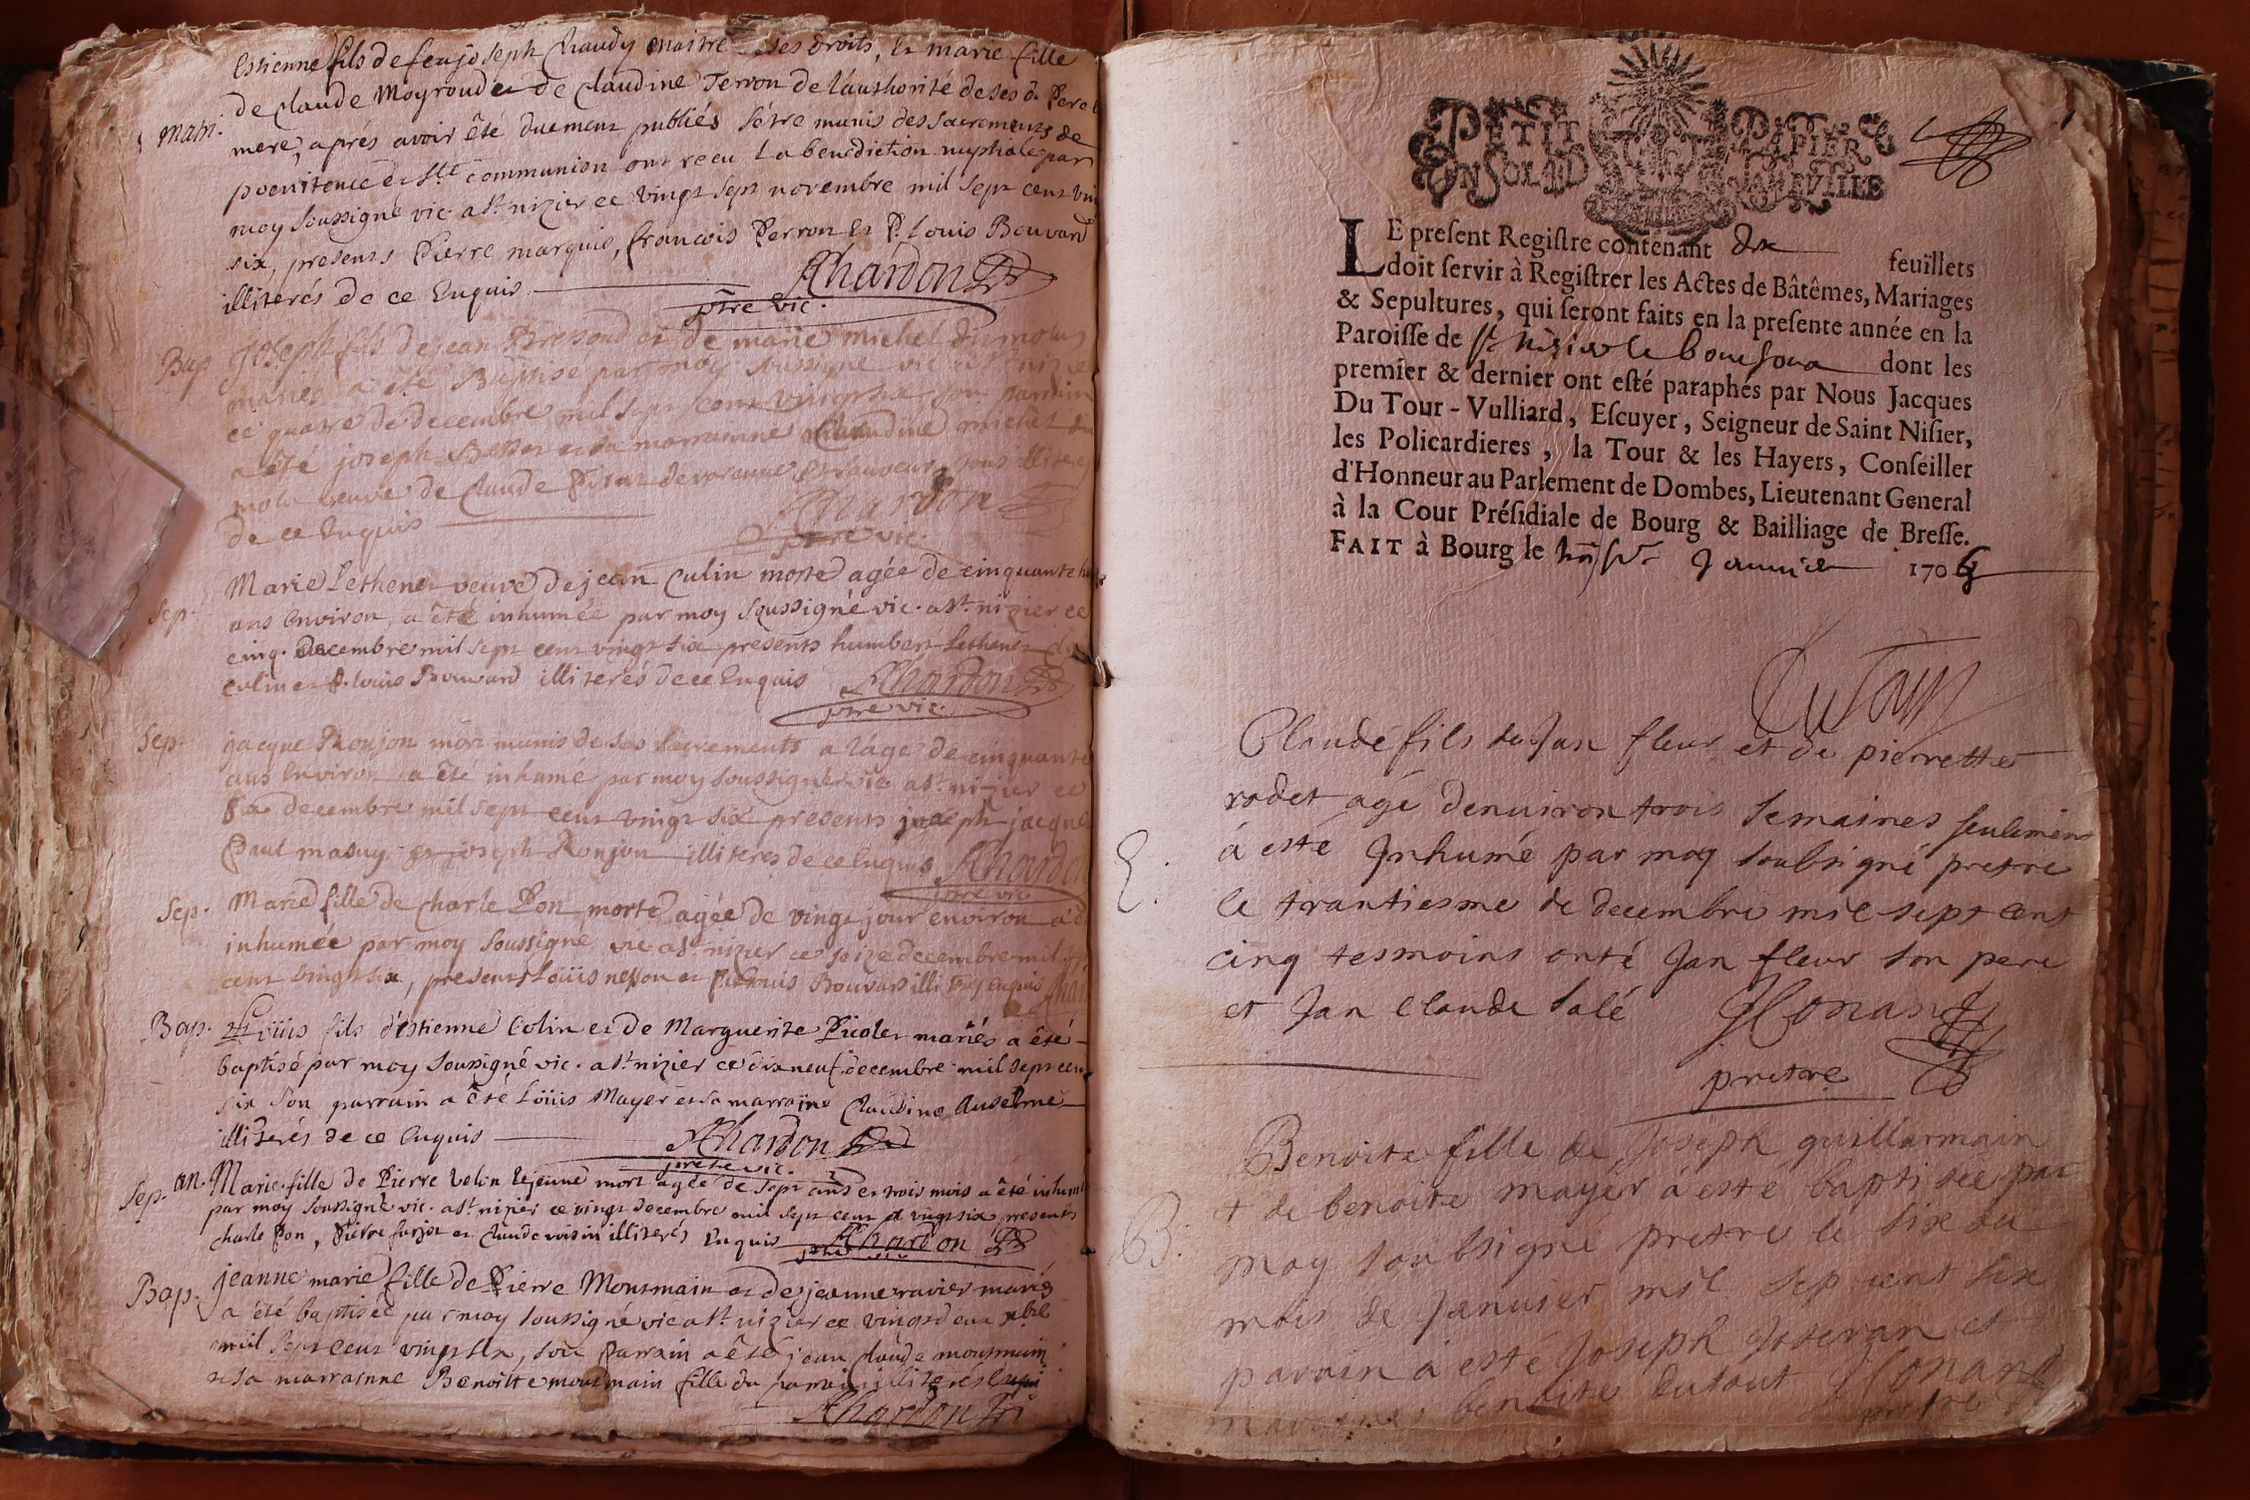 Estienne fils de feu joseph Chaudy maitre de ses droits, et marie fille
de claude Moyroud et de claudine Terron de l'authorité de ses d. Pere et
Mari.
mere, aprés avoir été duement publiés s'étre munis des sacrements de
poenitence et Ste communion ont recu la benediction nuptiale par
moy soussigné vic. a St. nizier ce vingt sept novembre mil sept cent vin
six, presents Pierre marquis, francois Perron et P. Louis Bouvard
illiterés de ce Enquis
Chardon
ptre vic.
Bap
Joseph fils de jean Bressoud et de marie michel du molu
mariés a été Baptisé par moy soussigné vic a St nizie
ce quatre de decembre mil sept cent vingt six son parrain
a été joseph et sa marrainne Claudine michel du
molu veuve de Claude
de ce Enquis
Chardon
ptre vic.
Marie Lethenet veuve de jean Culin morte agée de cinquante
Sep.
ans Environ, a été inhumée par moy soussigné vic. a St. nizier ce
cinq. Decembre mil sept cent vingt six presents humbert Lethenet
colin et P. Louis Bouvard illiterés de ce Enquis Chardon
ptre vic.
Sep.
jacque Roujon mort munis de ses sacrements a l'áge de cinquante
ans Environ a été inhumé par moy soussigné vic a St. nizier ce
decembre mil sept cent vingt six presents joseph jacque
Paul masuy et joseph Roujon illiterés de ce Enquis Chardo
ptre vic
Sep.
Marie fille de charle Pon morte agée de vingt jour environ a é
inhumée par moy soussigné vic a St. nizier ce seize decembre mil
cent vingt six, presents Loüis et P. Louis Bouvard illi Enquis
Bap.
Loüis fils d'estienne Colin et de Marguerite Picolet mariés a été
baptisé par moy soussigné vic. a St. nizier ce dix neuf. decembre mil sept cen
six son parrain a été Loüis Mayer et sa marraine Claudine Anselme
illiterés de ce Enquis
Chardon
ptre vic.
Sep.
Marie fille de Pierre Velin Lejeune mort agée de sept ans et trois mois a été inhum
par moy soussigné vic. a St. nizier ce vingt decembre mil sept cent vingt six presents
charle Pon, Pierre et Claude voisin illiterés Enquis Chardon
Bap.
jeanne marie fille de Pierre Monsmain et de jeanne ravier mariés
a été baptisée par moy soussigné vic a St. nizier ce vingt deux xbre
mil sept cent vingt six, son Parrain a été jean claude monsmain
et sa marrainne Benoitte monsmain fille du parrain illiterés Enqui
Chardon
PETIT PAPIER
EN SOL LA FEVILLE
LE preſent Regiſtre contenant dix feuillets
doit ſervir à Regiſtrer les Actes de Bâtêmes, Mariages
& Sepultures, qui ſeront faits en la preſente année en la
Paroiſſe de St. Nizier le bouchoux dont les
premier & dernier ont eſté paraphés par Nous Jacques
Du Tour-Vulliard, Eſcuyer, Seigneur de Saint Niſier,
les Policardieres, la Tour & les Hayers, Conſeiller
d'Honneur au Parlement de Dombes, Lieutenant General
à la Cour Préſidiale de Bourg & Bailliage de Breſſe.
FAIT à Bourg le Janvier 1706
DuTour
Claude fils de Jan fleur et de pierrette
rodet agé denuiron trois semaines seulement
E.
á esté Inhumé par moy soubsigné pretre
le trantiesme de decembre mil sept cent
cinq tesmoins onté Jan fleur son pere
et Jan Claude Salé JConand
pretre
Benoite fille de Joseph guillarmain
B.
+ de benoite mayer á esté baptisée par
moy soubsigné pretre le six du
mois de Januier mil sep cent six
parain á esté Joseph Joseran et
maraine benoite dutout JConand
pretre